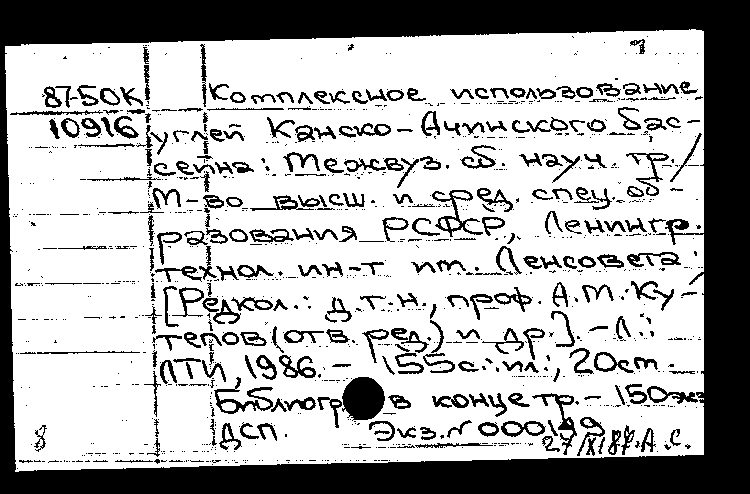 87-50К Комплексное использование
10916 углей Канско-Ачинского бас-
сейна: Межвуз. сб. науч. тр./
М-во высш. и сред. спец. об-
разования РСФСР, Ленингр.
технол. ин-т им. Ленсовета;
[Редкол.: д.т.н., проф. А.М. Ку-
тепов (отв. ред.) и др.]. - Л.:
ЛТИ, 1986. - 155 с.: ил.; 20 см.
Библиогр. в конце тр. - 150 экз
ДСП. Экз. № 000149
8 27/XI 87. А.С.